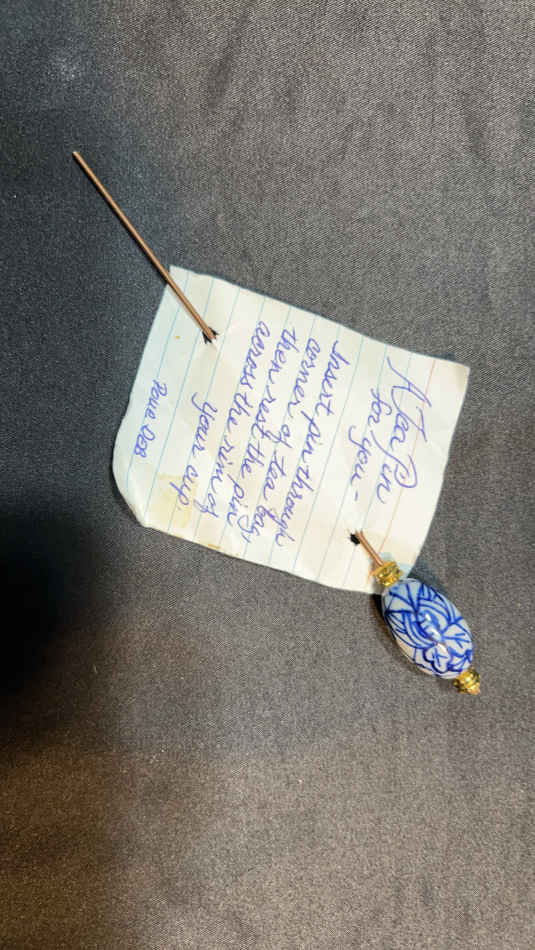 A Tea Pin
for you -
Insert pin through
corner of tea bag,
then rest the pin
across the rim of
your cup.